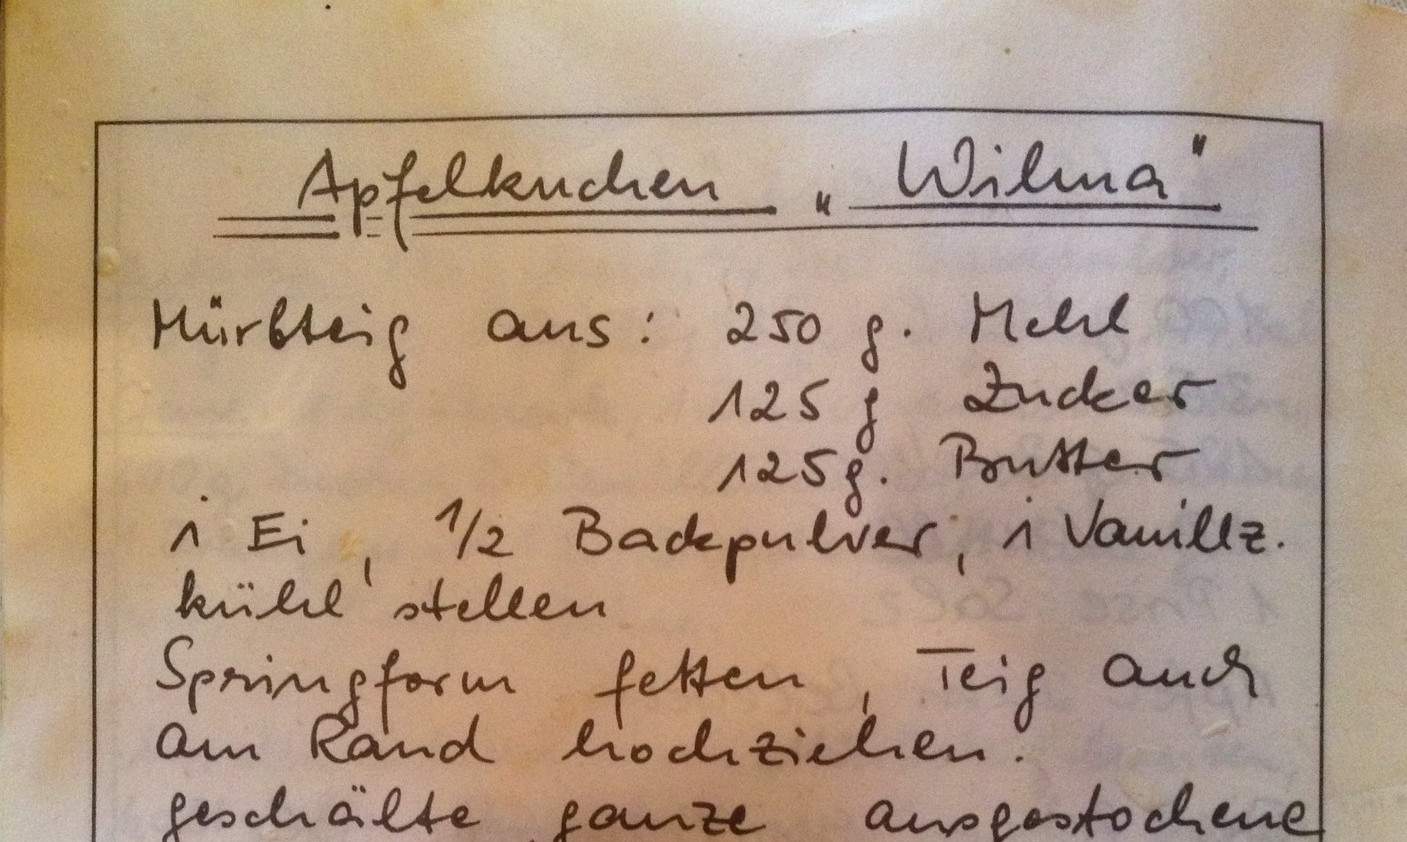 Apfelkuchen „Wilma"
Mürbteig aus: 250 g. Mehl
125 g Zucker
125g. Butter
1 Ei, 1/2 Backpulver, 1 Vanillz.
kühl stellen
Springform fetten, Teig auch
am Rand hochziehen.
geschälte ganze ausgestochene